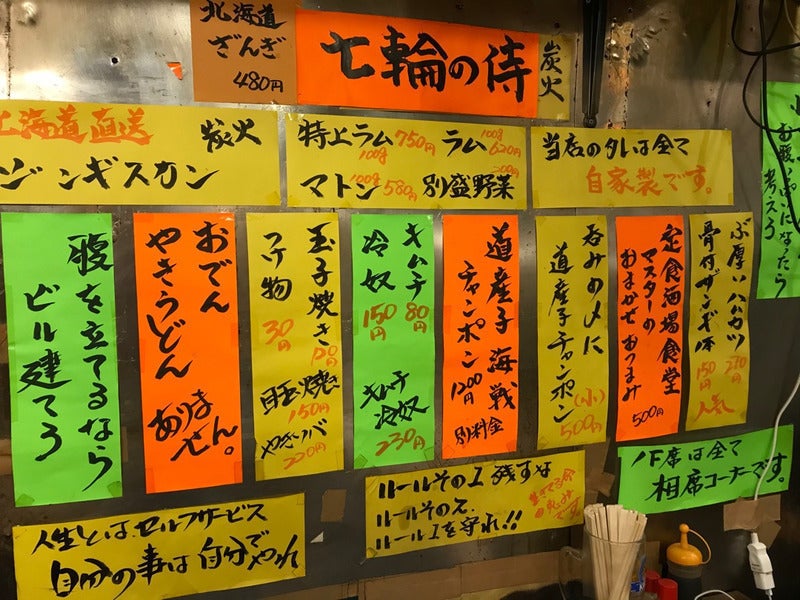 北海道
ざんぎ
480円
七輪の侍
炭火
北海道直送 炭火
ジンギスカン
特上ラム 100g 750円 ラム 100g 620円
マトン 100g 580円 別盛野菜 200円
当店のタレは全て
自家製です。
お腹いっぱいになったら
考えろう
腹を立てるなら
ビル建てろう
おでん
やきうどん
ありません。
玉子焼き
つけ物 30円
目玉焼 150円
やきソバ 220円
キムチ 80円
冷奴 150円
キムチ
冷奴
230円
道産子 海戦
チャンポン
1200円 別料金
呑みの〆に
道産子チャンポン
(小)
500円
定食酒場食堂
マスターの
おまかせ おつまみ
500円
ぶ厚いハムカツ 230円
骨付ザンギ1本 150円
人気
人生とは、セルフサービス
自分の事は自分でやれ
ルールその1 残すな
ルールその2
ルール1を守れ!!
生きてる命
の恵み
です。
ノ下席は全て
相席コーナーです。